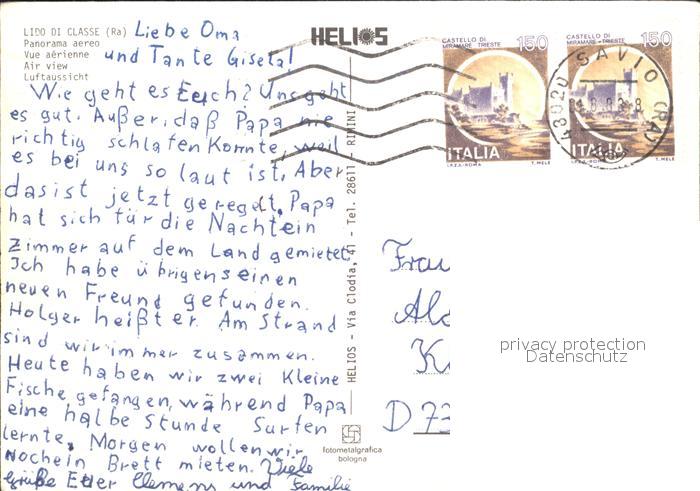 LIDO DI CLASSE (Ra)
Panorama aereo
Vue aérienne
Air view
Luftaussicht
Liebe Oma
und Tante Gisela!
Wie geht es Euch? Uns geht
es gut. Außer, daß Papa nie
richtig schlafen konnte, weil
es bei uns so laut ist. Aber
das ist jetzt geregelt. Papa
hat sich für die Nacht ein
Zimmer auf dem Land gemietet.
Ich habe übrigens einen
neuen Freund gefunden.
Holger heißt er. Am Strand
sind wir immer zusammen.
Heute haben wir zwei kleine
Fische gefangen, während Papa
eine halbe Stunde Surfen
lernte. Morgen wollen wir
noch ein Brett mieten. Viele
Grüße Euer Clemens und Familie
HELIOS
HELIOS - Via Clodia, 41 - Tel. 28611 - RIMINI
fotometalgrafica
bologna
CASTELLO DI
MIRAMARE TRIESTE
150
ITALIA
I.P.Z.S.-ROMA T. MELE
CASTELLO DI
MIRAMARE TRIESTE
150
ITALIA
I.P.Z.S.-ROMA T. MELE
48020 SAVIO (RA)
Frau
K
D 73
privacy protection
Datenschutz